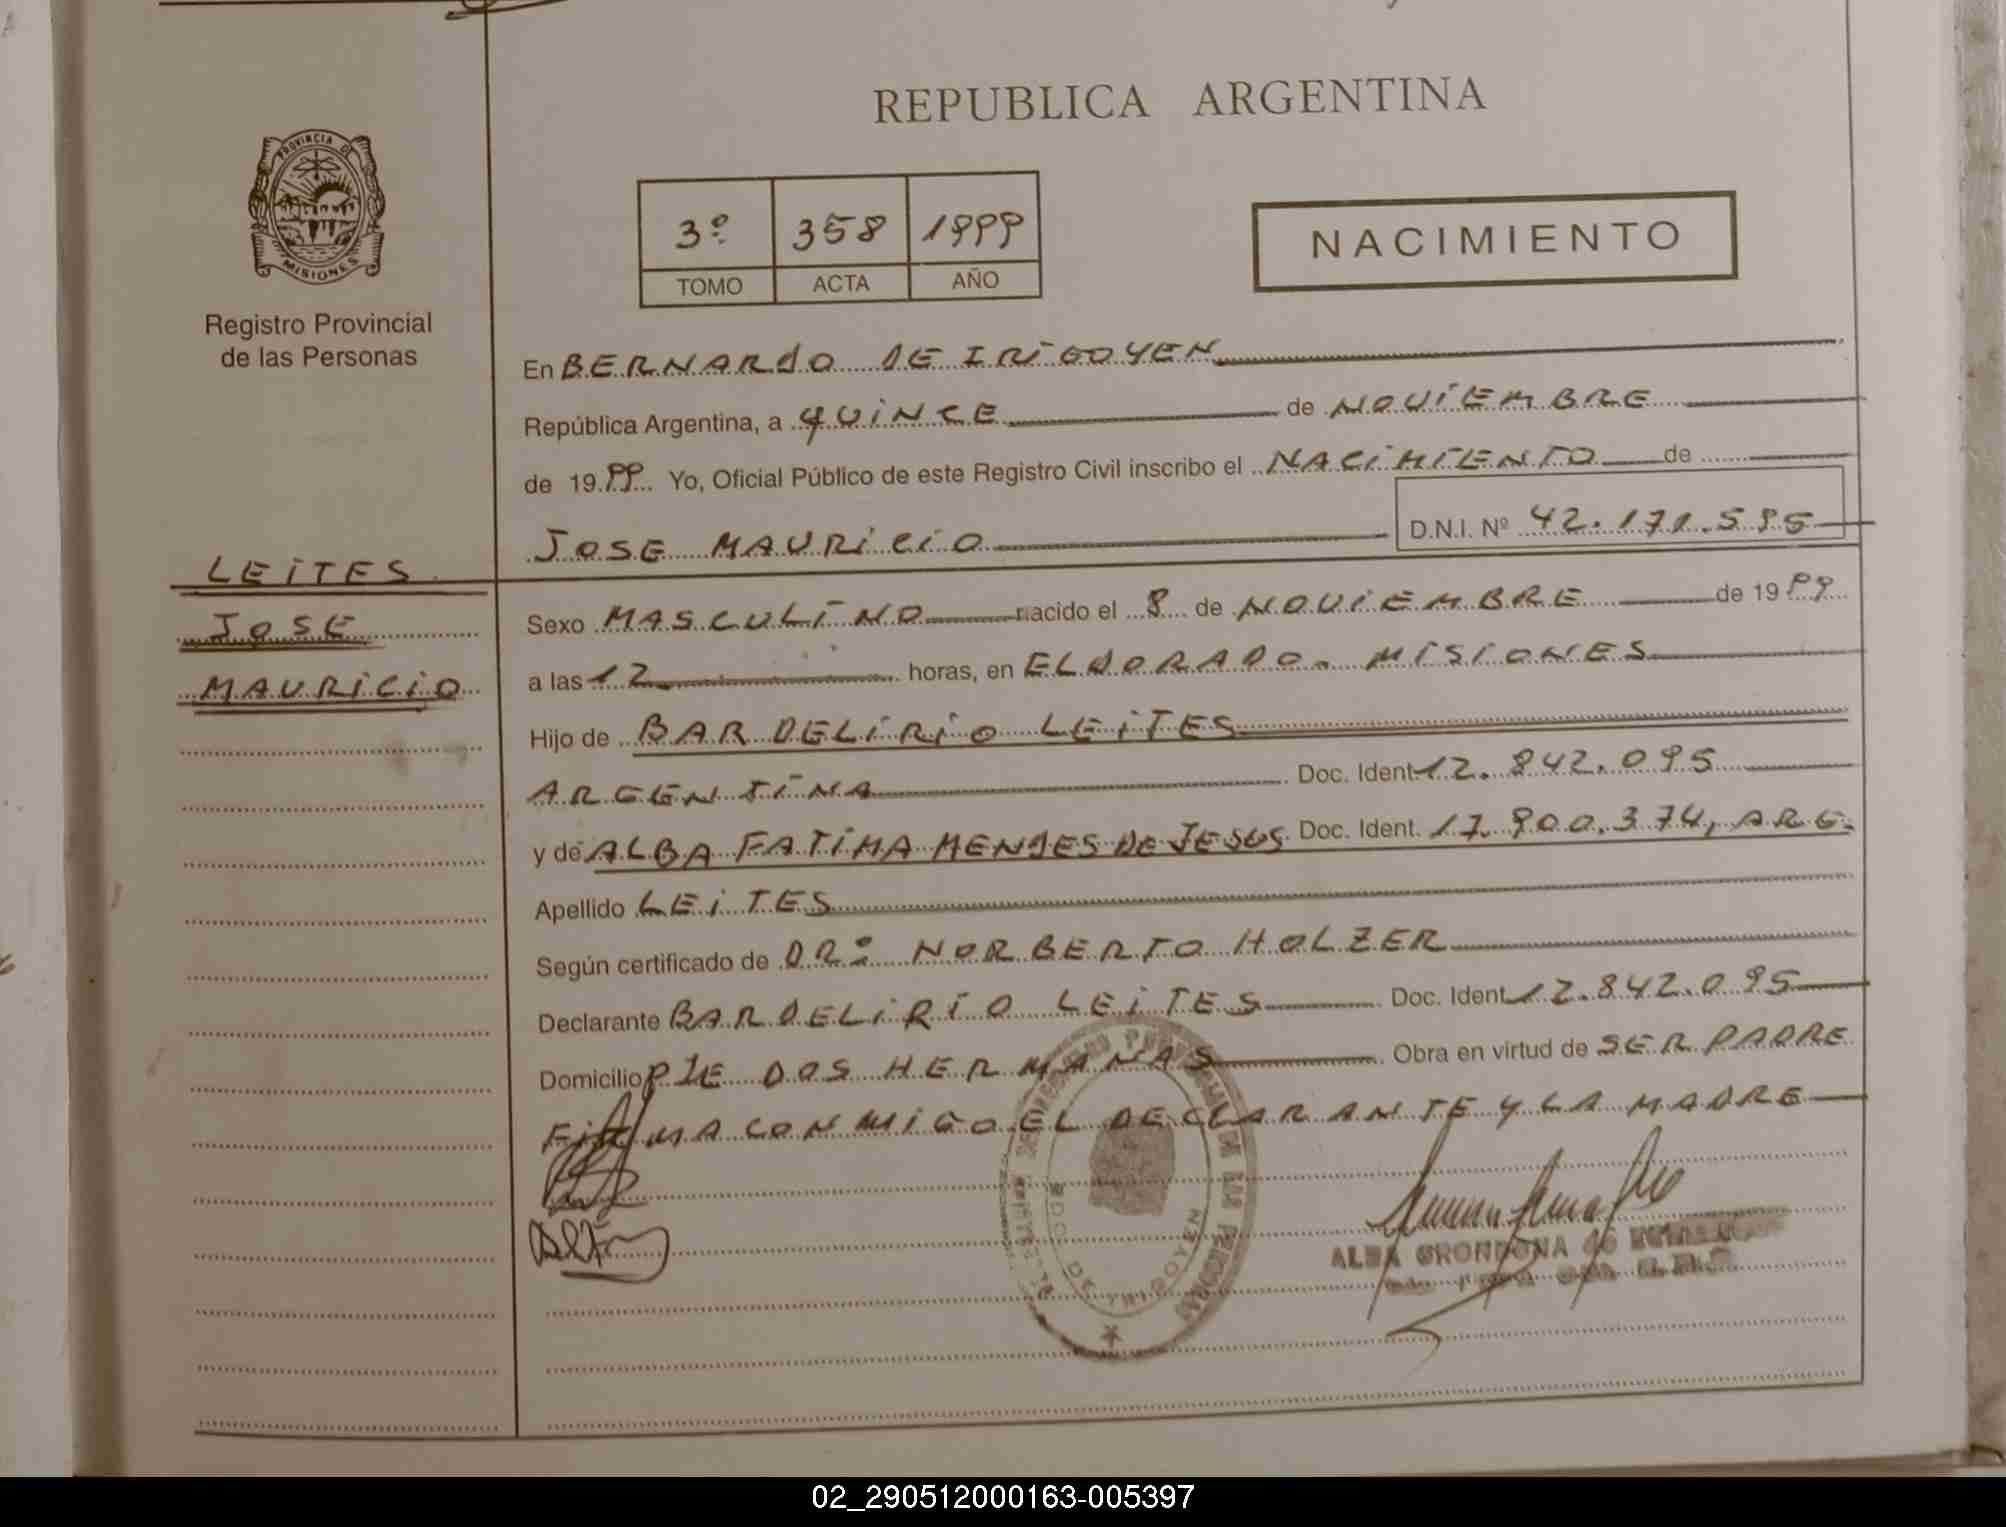 REPUBLICA ARGENTINA
PROVINCIA DE
MISIONES
Registro Provincial
de las Personas
3º 358 1999
TOMO ACTA AÑO
NACIMIENTO
En BERNARDO DE IRIGOYEN
República Argentina, a QUINCE de NOVIEMBRE
de 1999 Yo, Oficial Público de este Registro Civil inscribo el NACIMIENTO de
JOSE MAURICIO D.N.I. Nº 42.171.595
LEITES
JOSE
MAURICIO
Sexo MASCULINO nacido el 8 de NOVIEMBRE de 1999
a las 12 horas, en ELDORADO. MISIONES
Hijo de BARDELIRIO LEITES
ARGENTINA Doc. Ident 12.842.095
y de ALBA FATIMA MENDES DE JESUS Doc. Ident. 17.900.374, ARG.
Apellido LEITES
Según certificado de DR. NORBERTO HOLZER
Declarante BARDELIRIO LEITES Doc. Ident 12.842.095
Domicilio PJE DOS HERMANAS Obra en virtud de SER PADRE
FIRMA CONMIGO EL DECLARANTE Y LA MADRE
BDO. DE IRIGOYEN
ALBA GRONDONA de
02_290512000163-005397